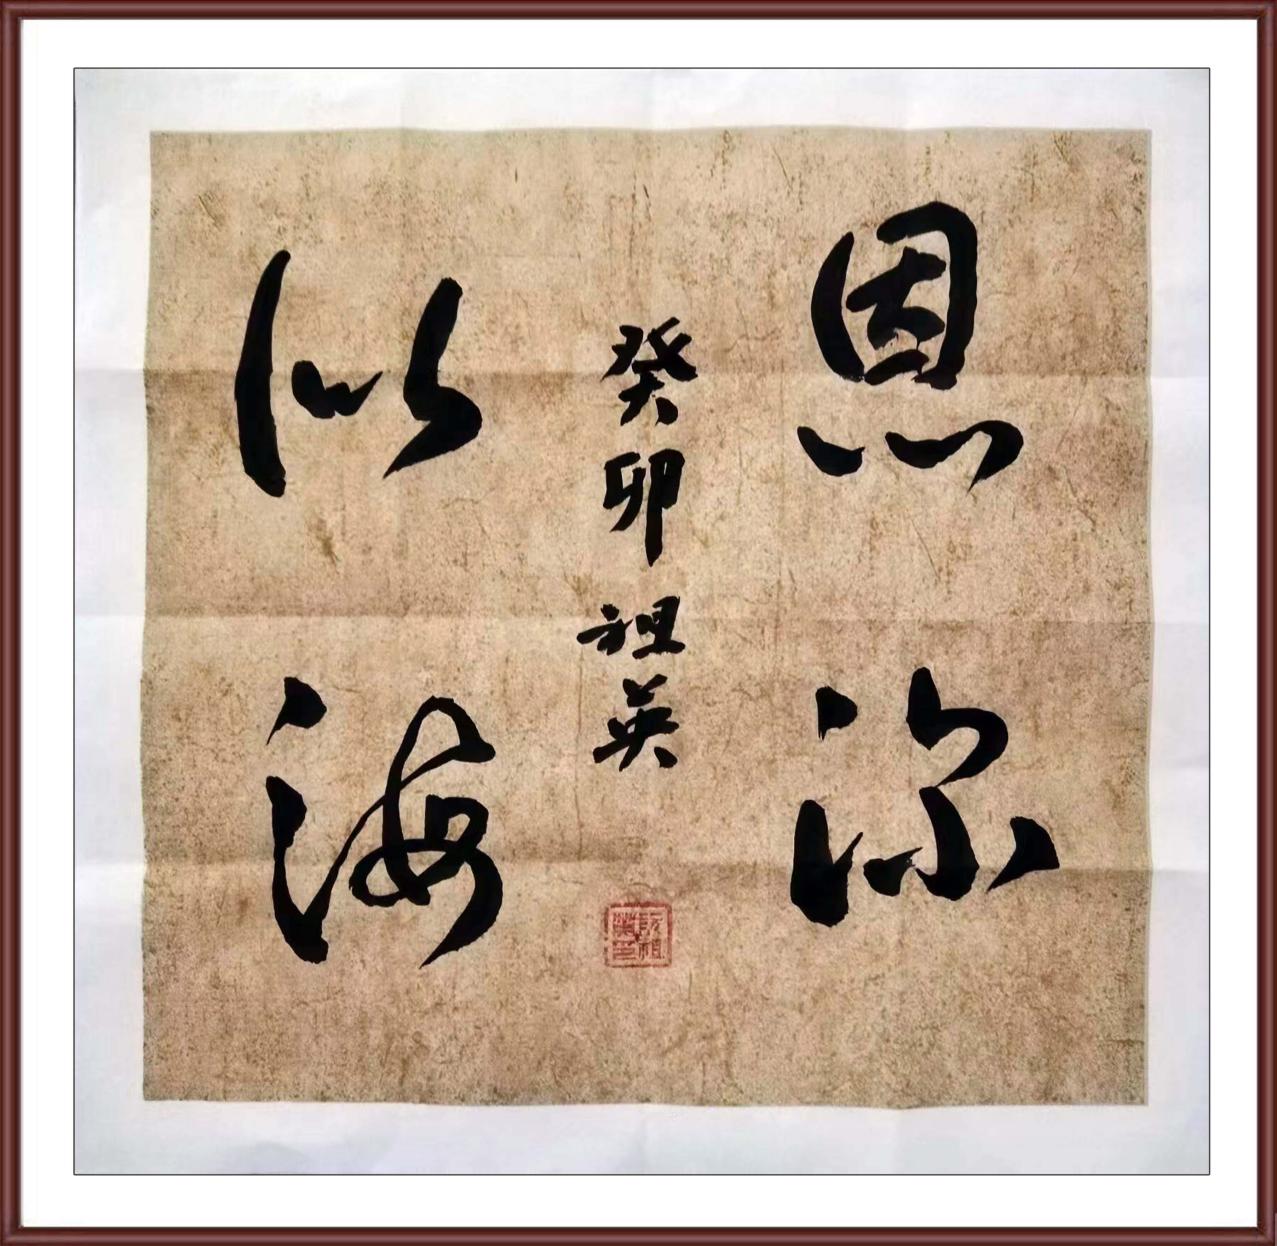 恩深
似海
癸卯祖英